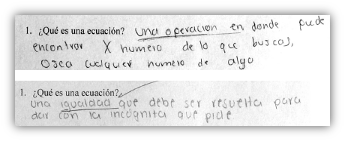 1. ¿Qué es una ecuación? Una operacion en donde puede
encontrar X numero de lo que buscas,
Osea cualquier numero de algo
1. ¿Qué es una ecuación?
Una igualdad que debe ser resuelta para
dar con la incógnita que pide